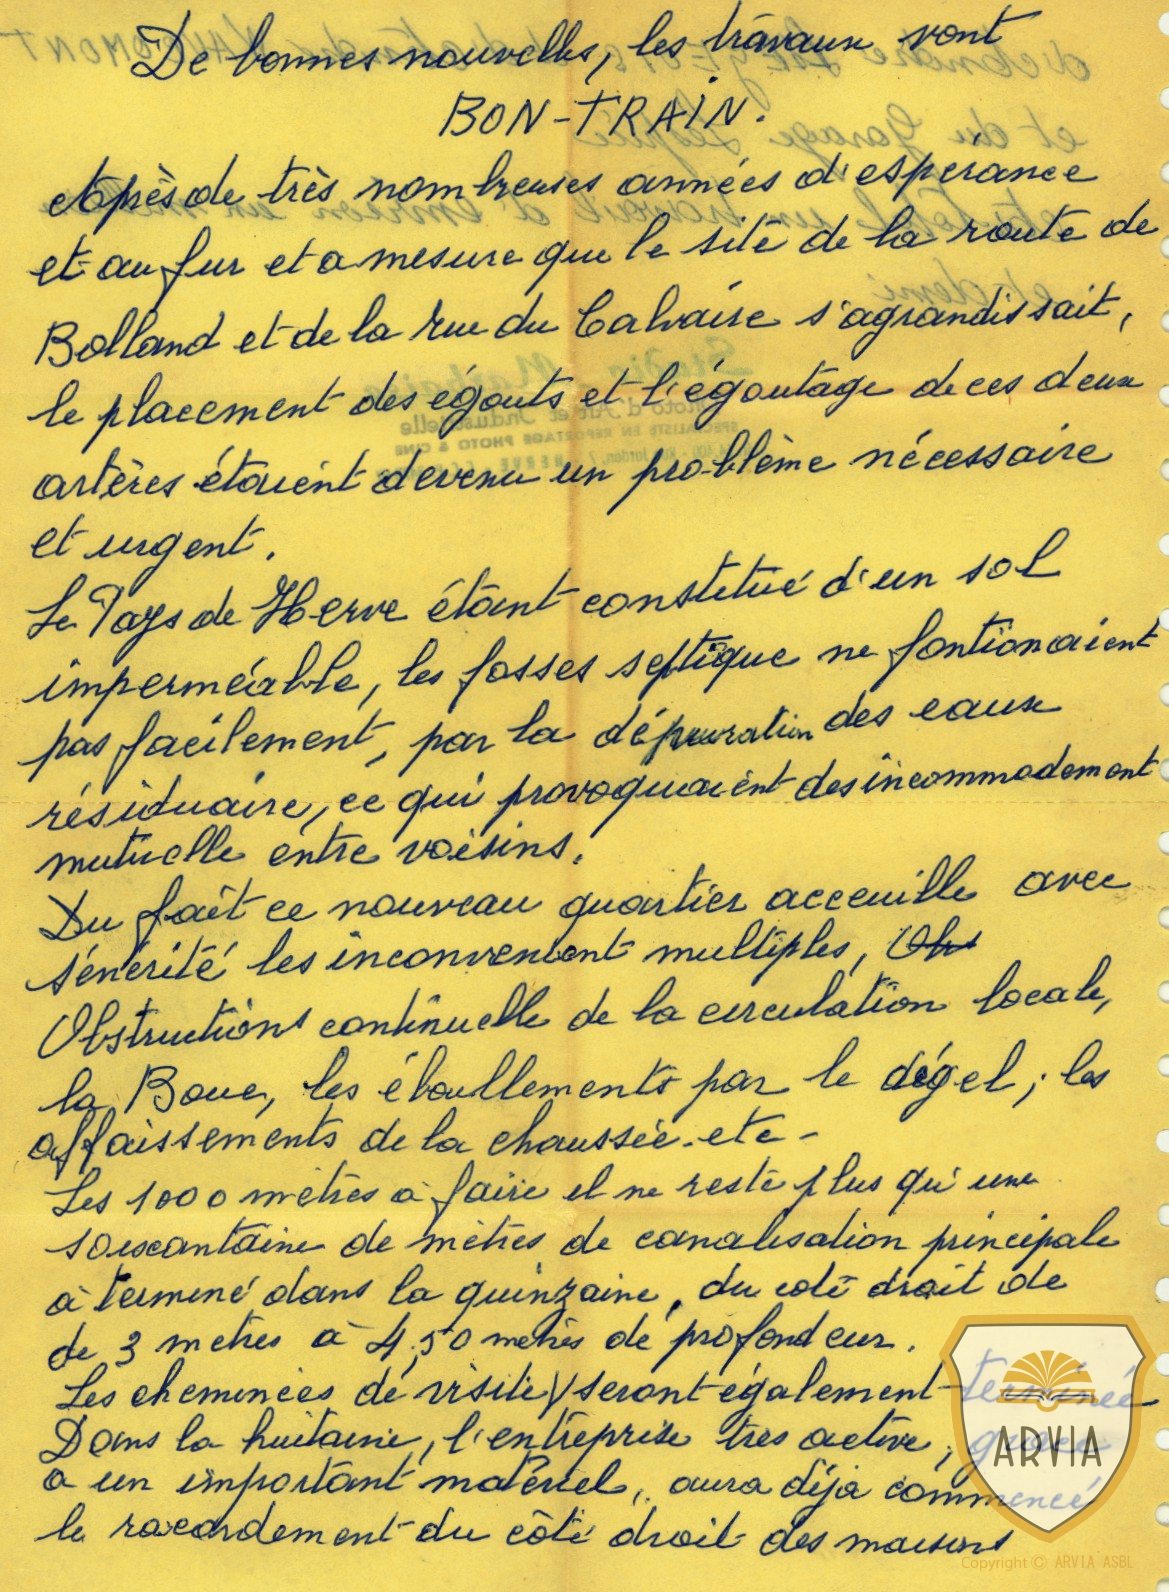 De bonnes nouvelles, les travaux vont
BON-TRAIN.
Après de très nombreuses années d'espérance
et au fur et a mesure que le site de la route de
Bolland et de la rue du Calvaire s'agrandissait,
le placement des égouts et l'égoutage de ces deux
artères étaient devenu un problème nécessaire
et urgent.
Le Pays de Herve étant constitué d'un sol
imperméable, les fosses septique ne fontionaient
pas facilement, par la dépuration des eaux
résiduaire, ce qui provoquaient des incommodement
mutuelle entre voisins.
Du fait ce nouveau quartier acceuille avec
sénérité les inconvenient multiples, Obs
Obstructions continuelle de la circulation locale,
la Boue, les éboullements par le dégel, les
affaissements de la chaussée - etc -
Les 1000 mètres a faire il ne reste plus qu'une
soixantaine de mètres de canalisation principale
à terminé dans la quinzaine, du coté droit de
de 3 metres à 4,50 metres de profondeur.
Les cheminées de visite seront également terminée
Dans la huitaine, l'entreprise très active, grace
a un important matériel, aura déjà commencé
le racordement du côté droit des maisons
ARVIA
Copyright © ARVIA ASBL